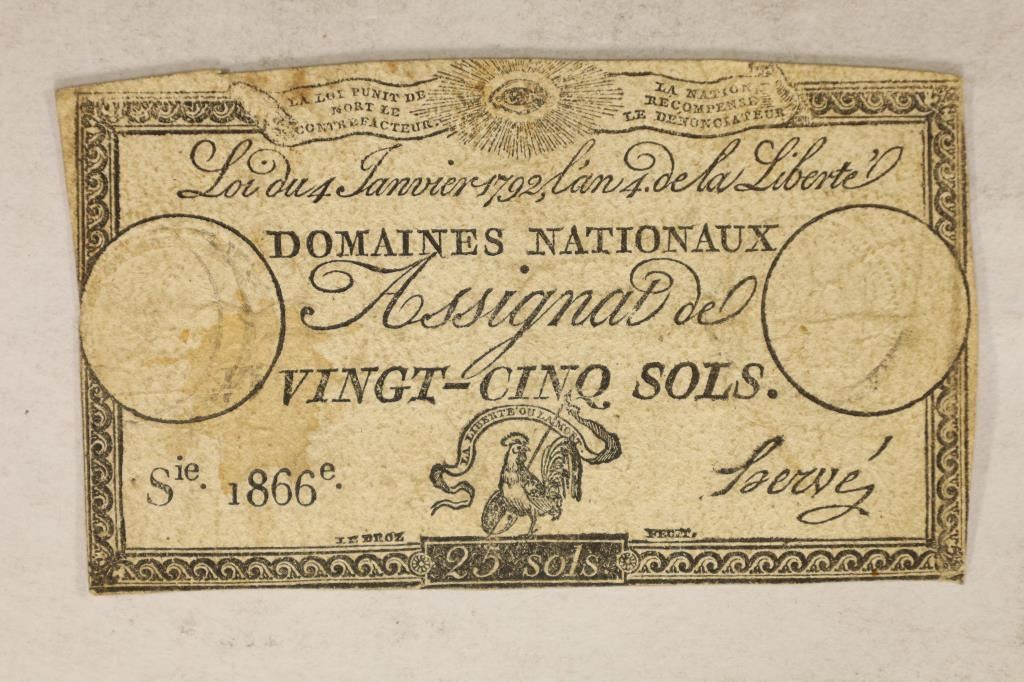 LA LOI PUNIT DE
MORT LE
CONTREFACTEUR.
LA NATION
RECOMPENSE
LE DENONCIATEUR
Loi du 4 Janvier 1792, l'an 4. de la Liberté
DOMAINES NATIONAUX
Assignat de
VINGT-CINQ SOLS.
LA LIBERTÉ OU LA MORT
Sie. 1866e.
Hervé
LE DROZ FECIT.
25 sols